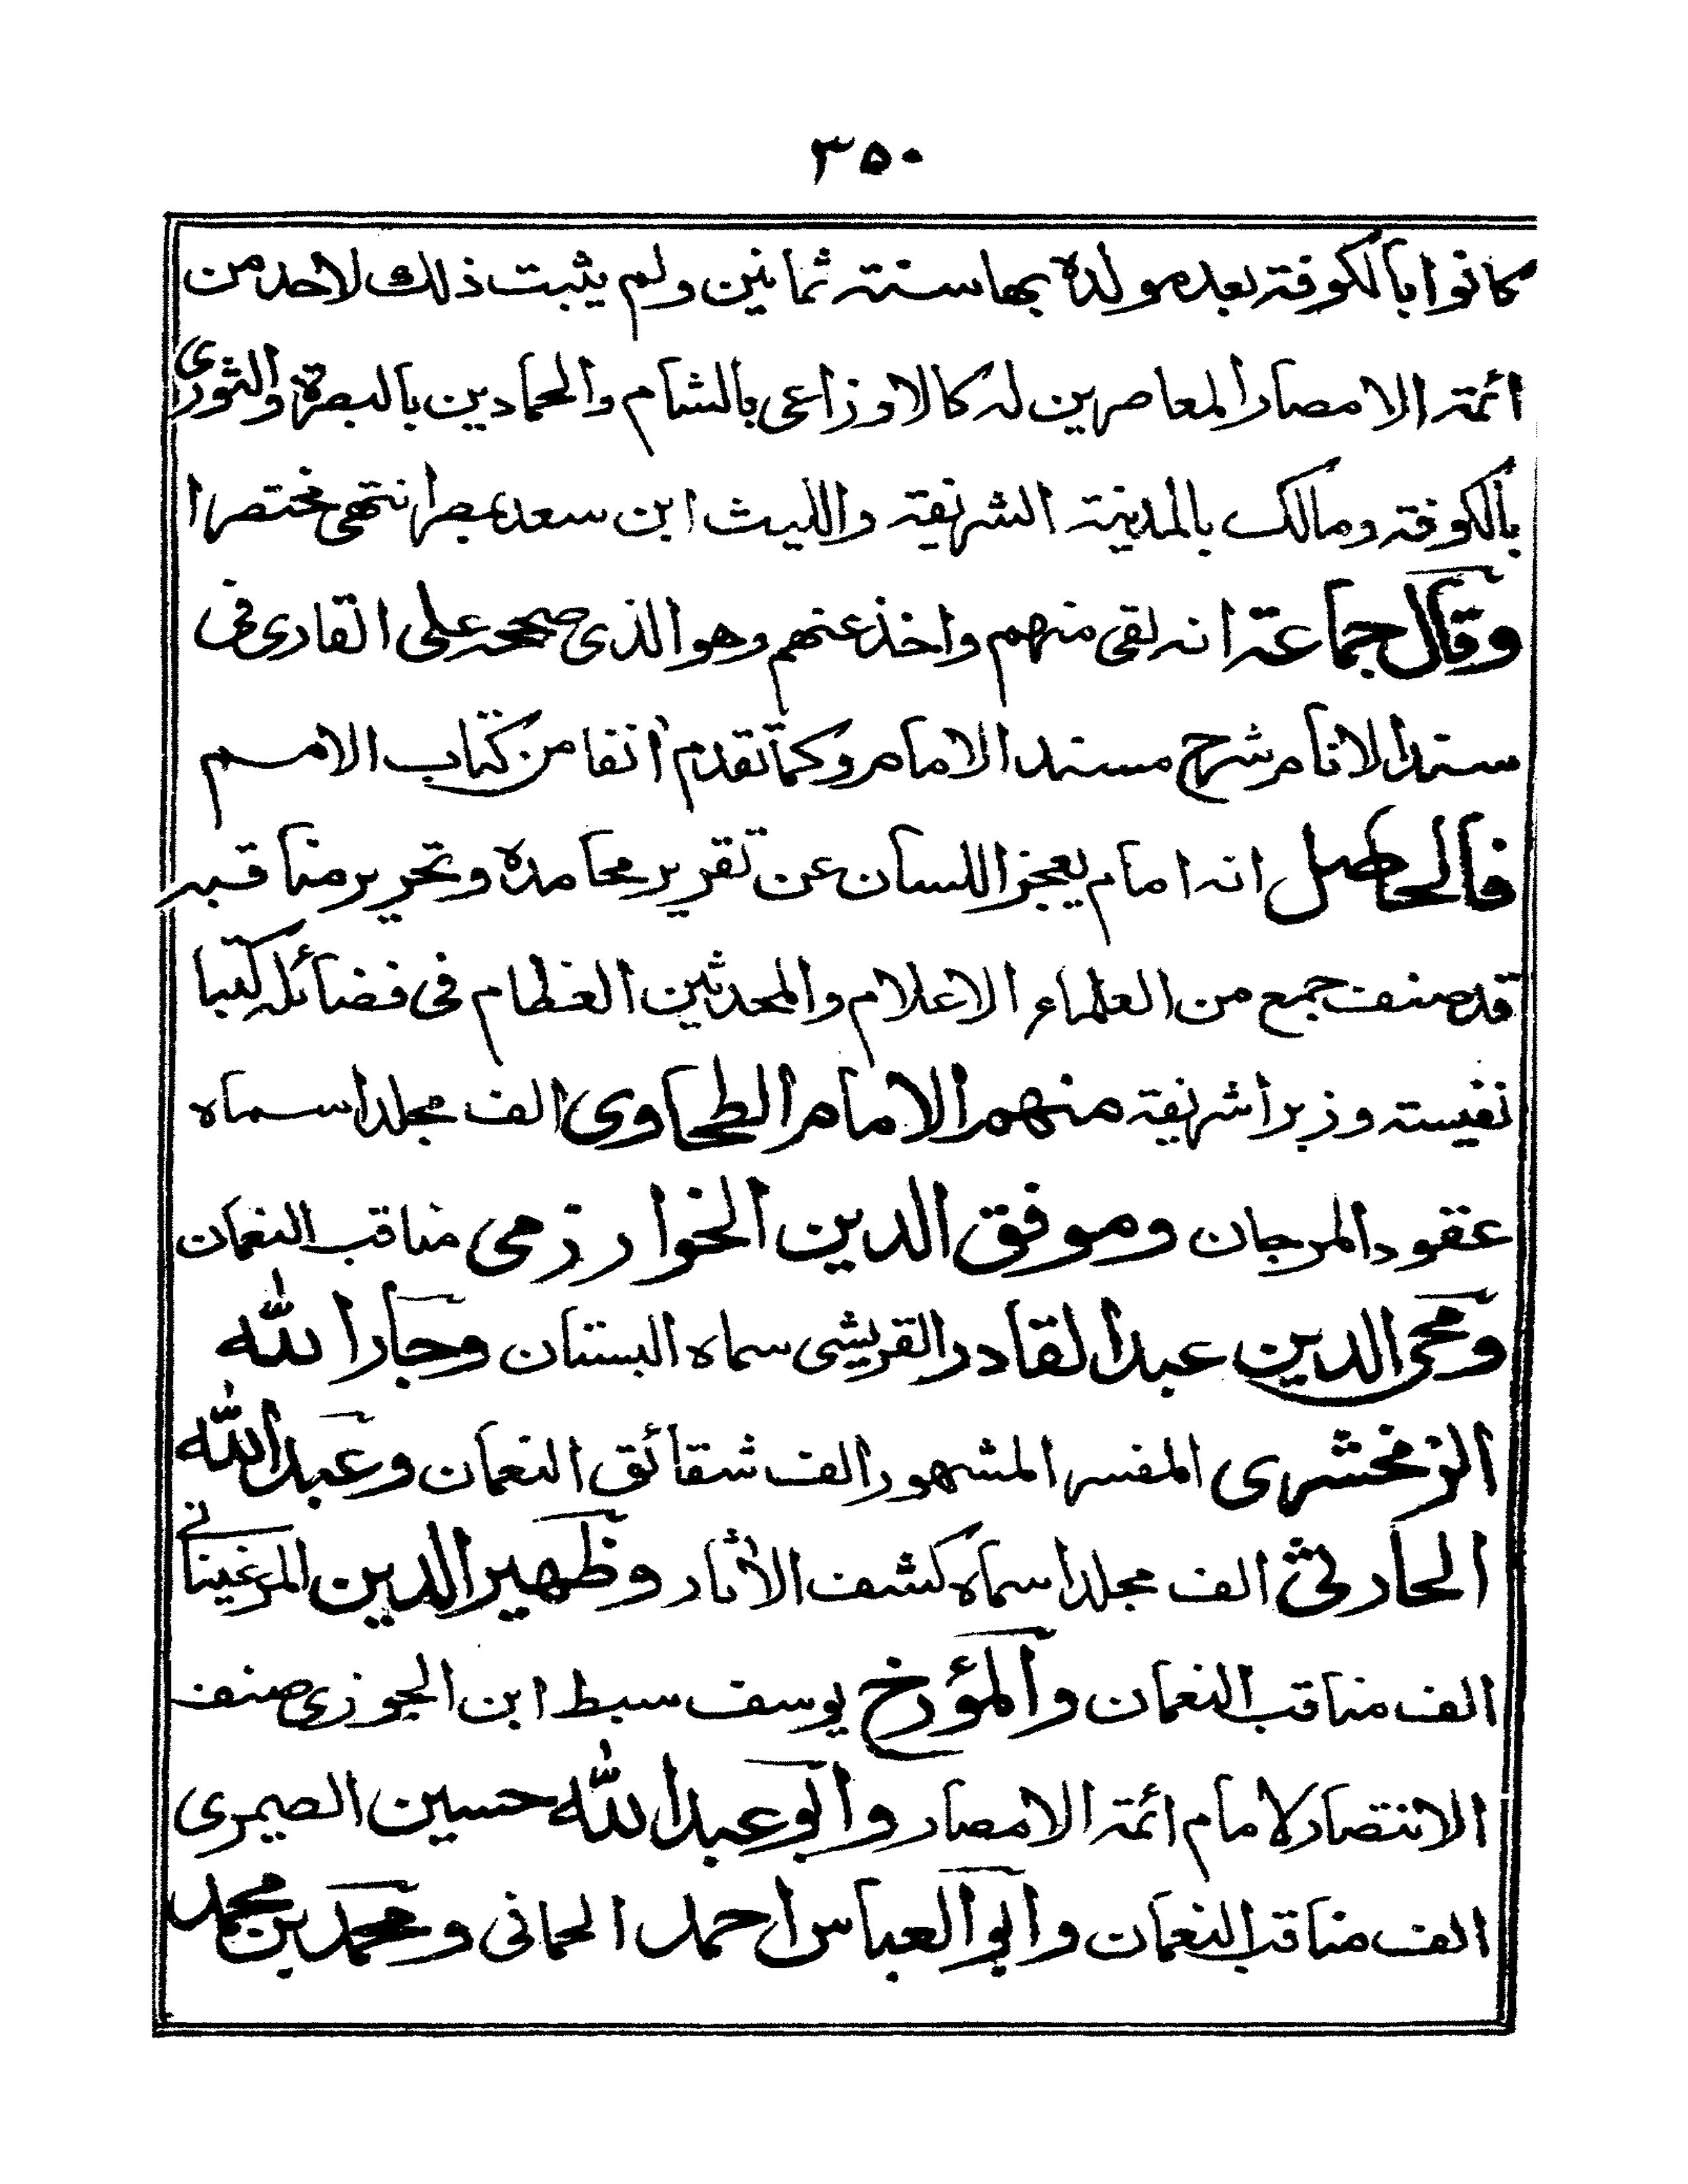 ٣٥٠
كانوا بالكوفة بعد مولده بها سنة ثمانين ولم يثبت ذلك لاحد من
ائمة الامصار المعاصرين له كالاوزاعى بالشام والحمادين بالبصرة والثورى
بالكوفة ومالك بالمدينة الشريفة والليث ابن سعد بمصر انتهى مختصرا
وقال جماعة انه لقى منهم واخذ عنهم وهو الذى صححه على القارى فى
سند الانام شرح مسند الامام وكما تقدم انفا من كتاب الامم
فالحاصل انه امام يعجز اللسان عن تقرير محامده وتحرير مناقبه
قد صنف جمع من العلماء الاعلام والمحدثين العظام فى فضائله كتبا
نفيسة وزبرا شريفة منهم الامام الطحاوى الف مجلدا سماه
عقود المرجان وموفق الدين الخوارزمى مناقب النعمان
ومحى الدين عبد القادر القريشى سماه البستان وجار الله
الزمخشرى المفسر المشهور الف شقائق النعمان وعبد الله
الحارثى الف مجلدا سماه كشف الاثار وظهير الدين المرغينانى
الف مناقب النعمان والمؤرخ يوسف سبط ابن الجوزى صنف
الانتصار لامام ائمة الامصار وابو عبد الله حسين الصيمرى
الف مناقب النعمان وابو العباس احمد الحمانى ومحمد بن محمد